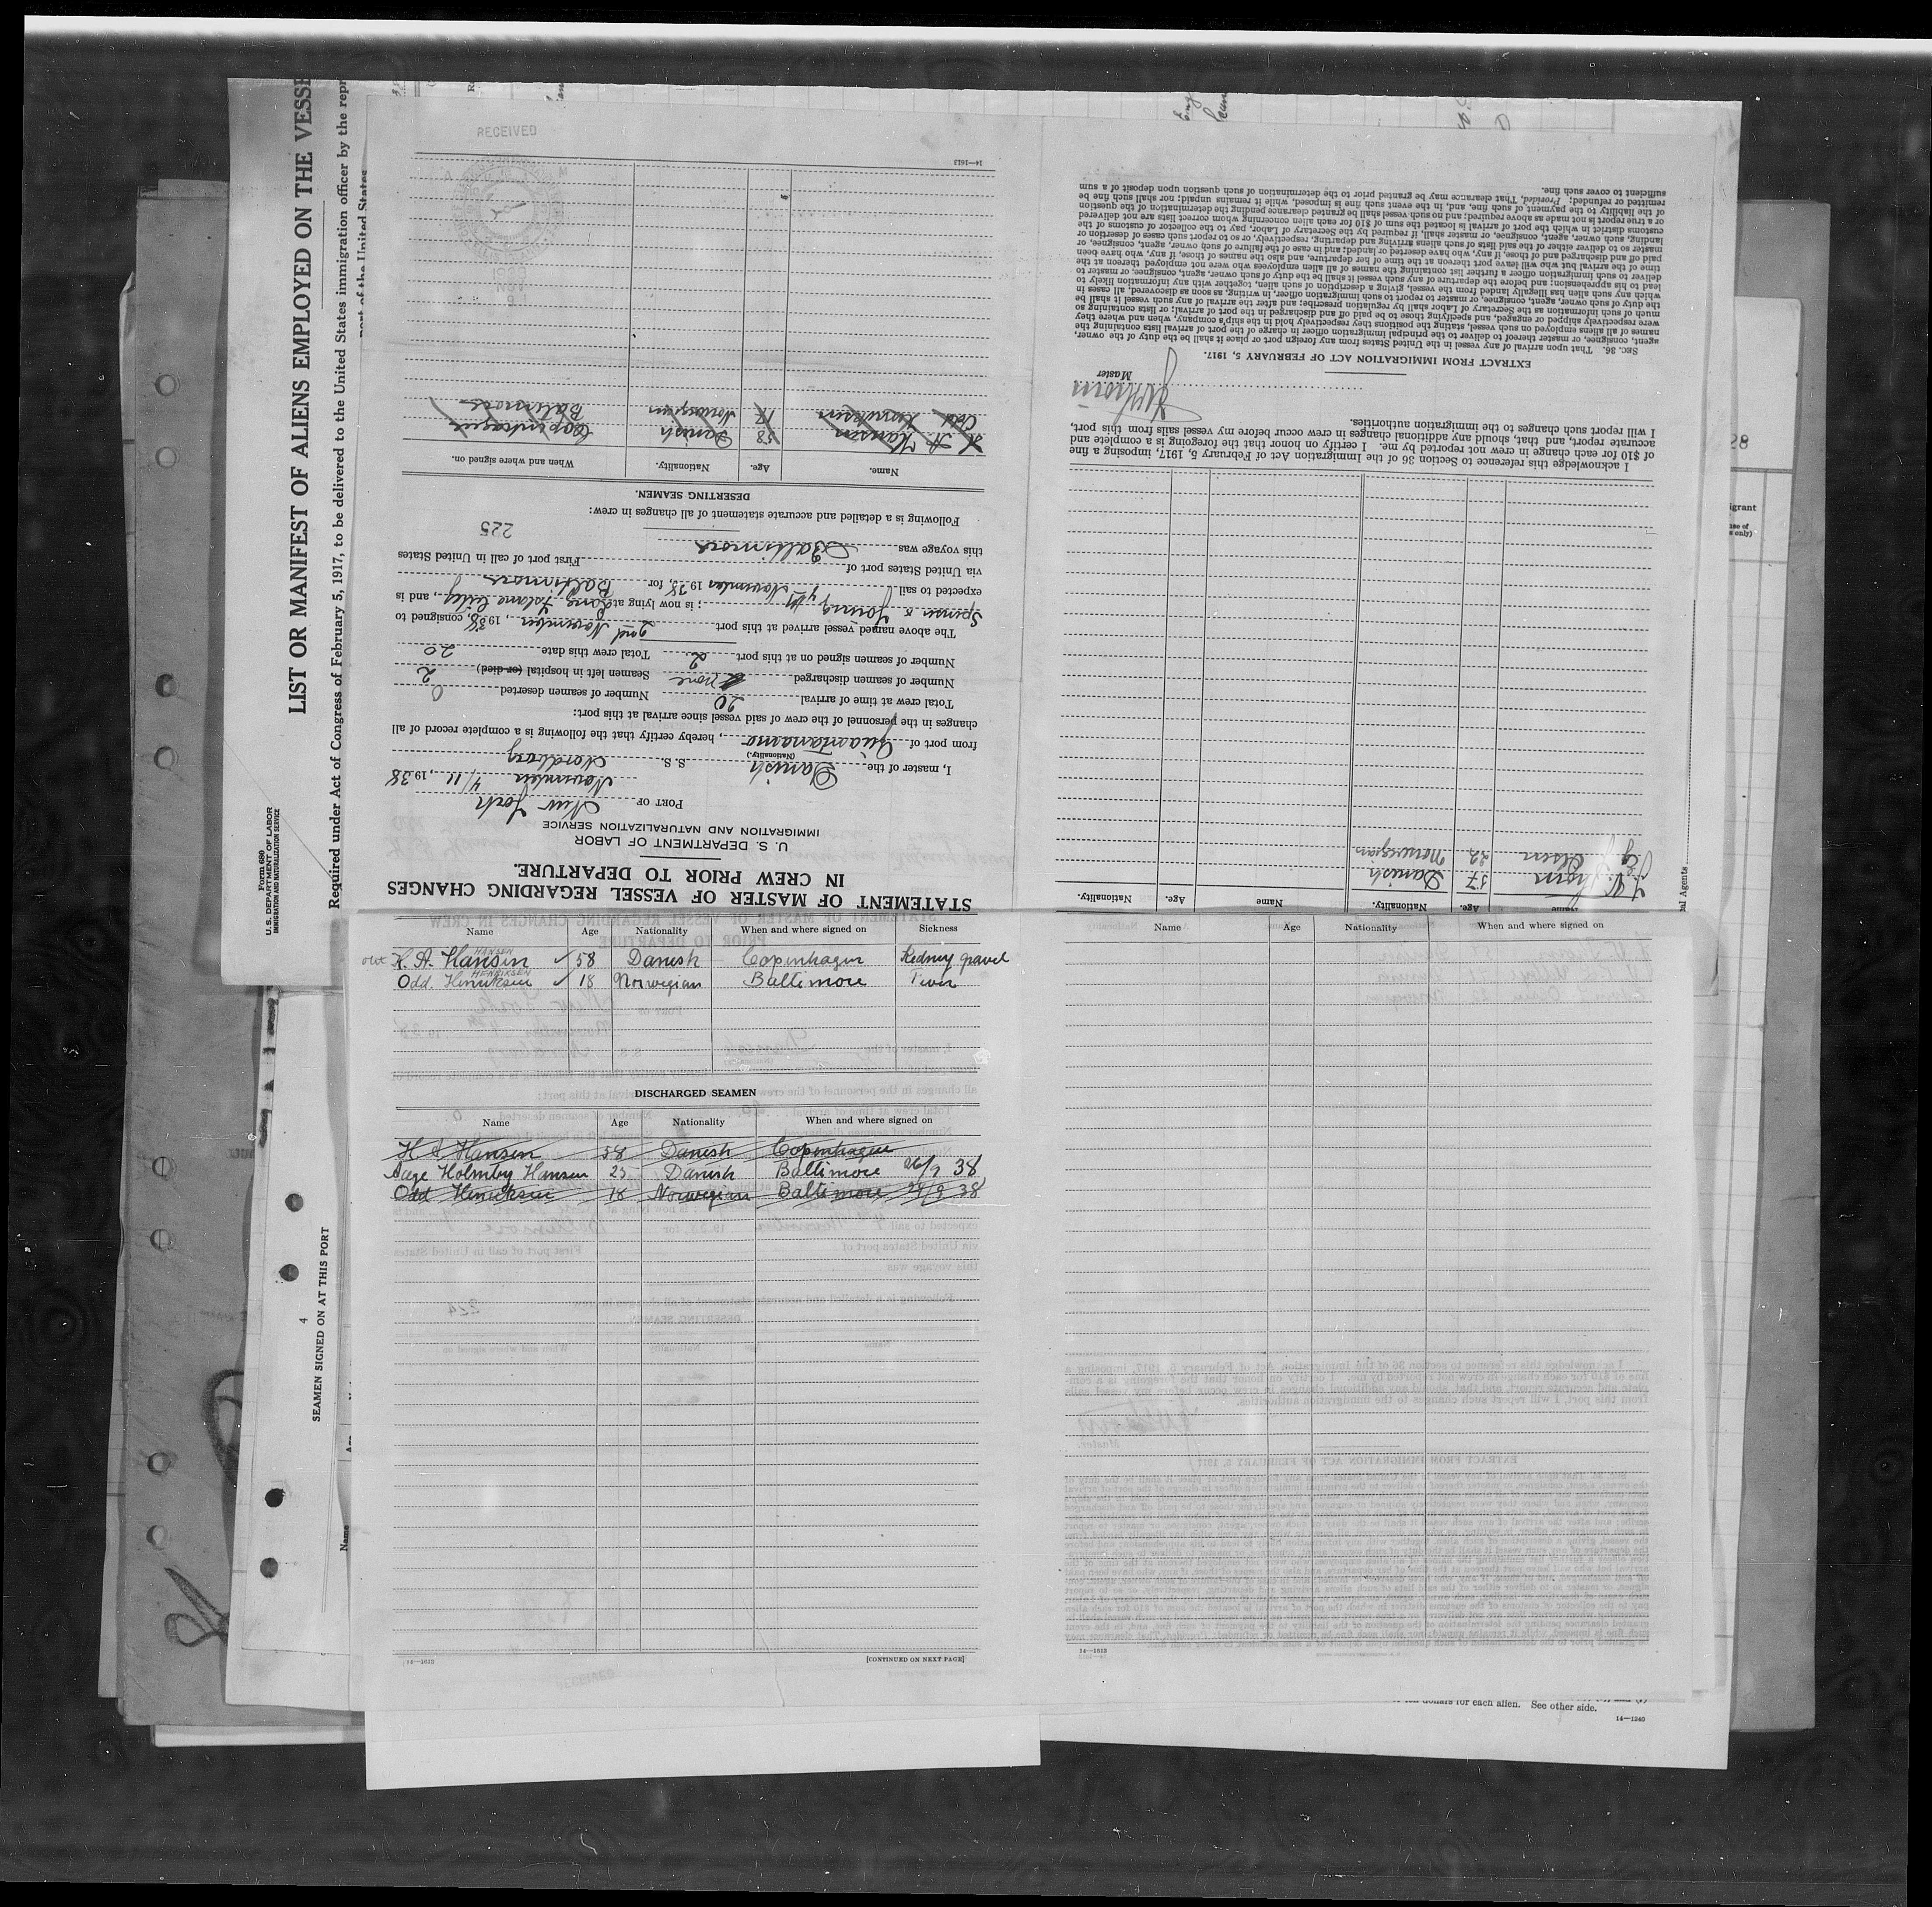 LIST OR MANIFEST OF ALIENS EMPLOYED ON THE VESSE
Required under Act of Congress of February 5, 1917, to be delivered to the United States immigration officer by the repr
port of the United States
Form 680
U. S. DEPARTMENT OF LABOR
IMMIGRATION AND NATURALIZATION SERVICE
STATEMENT OF MASTER OF VESSEL REGARDING CHANGES
IN CREW PRIOR TO DEPARTURE.
U. S. DEPARTMENT OF LABOR
IMMIGRATION AND NATURALIZATION SERVICE
PORT OF New York
November 4/11, 1938
I, master of the Danish S. S. Nordvang
(Nationality.)
from port of Guantanamo, hereby certify that the following is a complete record of all
changes in the personnel of the crew of said vessel since arrival at this port:
Total crew at time of arrival 20 Number of seamen deserted 0
Number of seamen discharged none Seamen left in hospital (or died) 2
Number of seamen signed on at this port 2 Total crew this date 20
The above named vessel arrived at this port 2nd November, 1938, consigned to
Spencer & Young; is now lying at Long Island City, and is
expected to sail 4th November 1938, for Baltimore
via United States port of First port of call in United States
this voyage was Baltimore
225
Following is a detailed and accurate statement of all changes in crew:
DESERTING SEAMEN.
Name. Age. Nationality. When and where signed on.
H. A. Hansen 58 Danish Copenhagen
Odd Henriksen 17 Norwegian Baltimore
14—1613
RECEIVED
Name Age Nationality. Name Age. Nationality.
Thom 57 Danish
Olsen 22 Norwegian
I acknowledge this reference to Section 36 of the Immigration Act of February 5, 1917, imposing a fine
of $10 for each change in crew not reported by me. I certify on honor that the foregoing is a complete and
accurate report, and that, should any additional changes in crew occur before my vessel sails from this port,
I will report such changes to the immigration authorities.
Master
EXTRACT FROM IMMIGRATION ACT OF FEBRUARY 5, 1917.
SEC. 36. That upon arrival of any vessel in the United States from any foreign port or place it shall be the duty of the owner,
agent, consignee, or master thereof to deliver to the principal immigration officer in charge of the port of arrival lists containing the
names of all aliens employed on such vessel, stating the positions they respectively hold in the ship's company, when and where they
were respectively shipped or engaged, and specifying those to be paid off and discharged in the port of arrival; or lists containing so
much of such information as the Secretary of Labor shall by regulation prescribe; and after the arrival of any such vessel it shall be
the duty of such owner, agent, consignee, or master to report to such immigration officer, in writing, as soon as discovered, all cases in
which any such alien has illegally landed from the vessel, giving a description of such alien, together with any information likely to
lead to his apprehension; and before the departure of any such vessel it shall be the duty of such owner, agent, consignee, or master to
deliver to such immigration officer a further list containing the names of all alien employees who were not employed thereon at the
time of the arrival but who will leave port thereon at the time of her departure, and also the names of those, if any, who have been
paid off and discharged and of those, if any, who have deserted or landed; and in case of the failure of such owner, agent, consignee, or
master so to deliver either of the said lists of such aliens arriving and departing, respectively, or so to report such cases of desertion or
landing, such owner, agent, consignee, or master shall, if required by the Secretary of Labor, pay to the collector of customs of the
customs district in which the port of arrival is located the sum of $10 for each alien concerning whom correct lists are not delivered
or a true report is not made as above required; and no such vessel shall be granted clearance pending the determination of the question
of the liability to the payment of such fine, and, in the event such fine is imposed, while it remains unpaid; nor shall such fine be
remitted or refunded; Provided, That clearance may be granted prior to the determination of such question upon deposit of a sum
sufficient to cover such fine.
Name Age Nationality When and where signed on Sickness
H. A. Hansen HANSEN ✓ 58 Danish Copenhagen Kedney gravel
Odd. Henriksen HENRIKSEN ✓ 18 Norwegian Baltimore Fever
DISCHARGED SEAMEN
Name Age Nationality When and where signed on
H A Hansen 58 Danish Copenhagen
Aage Holmby Hansen 25 Danish Baltimore 26/9 38
Odd Henriksen 18 Norwegian Baltimore 29/9 38
14—1613
[CONTINUED ON NEXT PAGE]
Name Age Nationality When and where signed on
14—1613
4
SEAMEN SIGNED ON AT THIS PORT
Name
ten dollars for each alien. See other side.
14—1240
28
al Agents